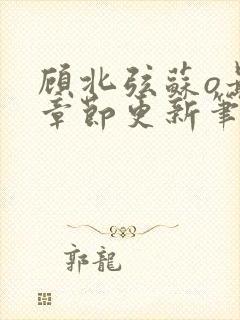 顾北弦蘇o
章節更新筆
郭龍